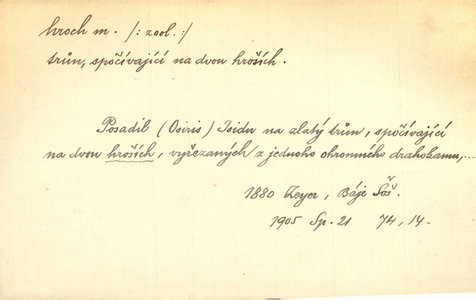 hroch m. /: zool. :/
trůn, spočívající na dvou hroších.
Posadil (Osiris) Isidu na zlatý trůn, spočívající
na dvou hroších, vyřezaných z jednoho ohromného drahokamu,...
1880 Zeyer, Báje Šoš.
1905 Sp. 21 74, 14-